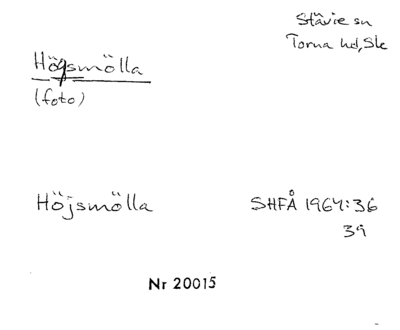 Stävie sn
Torna hd, Sk
Högsmölla
(foto)
Höjsmölla
SHFÅ 1964:36
39
Nr 20015